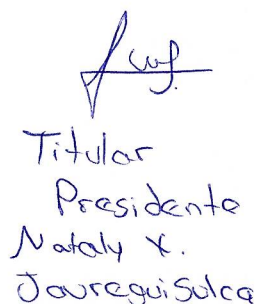 Titular
Presidente
Nataly X.
Jauregui Sulca